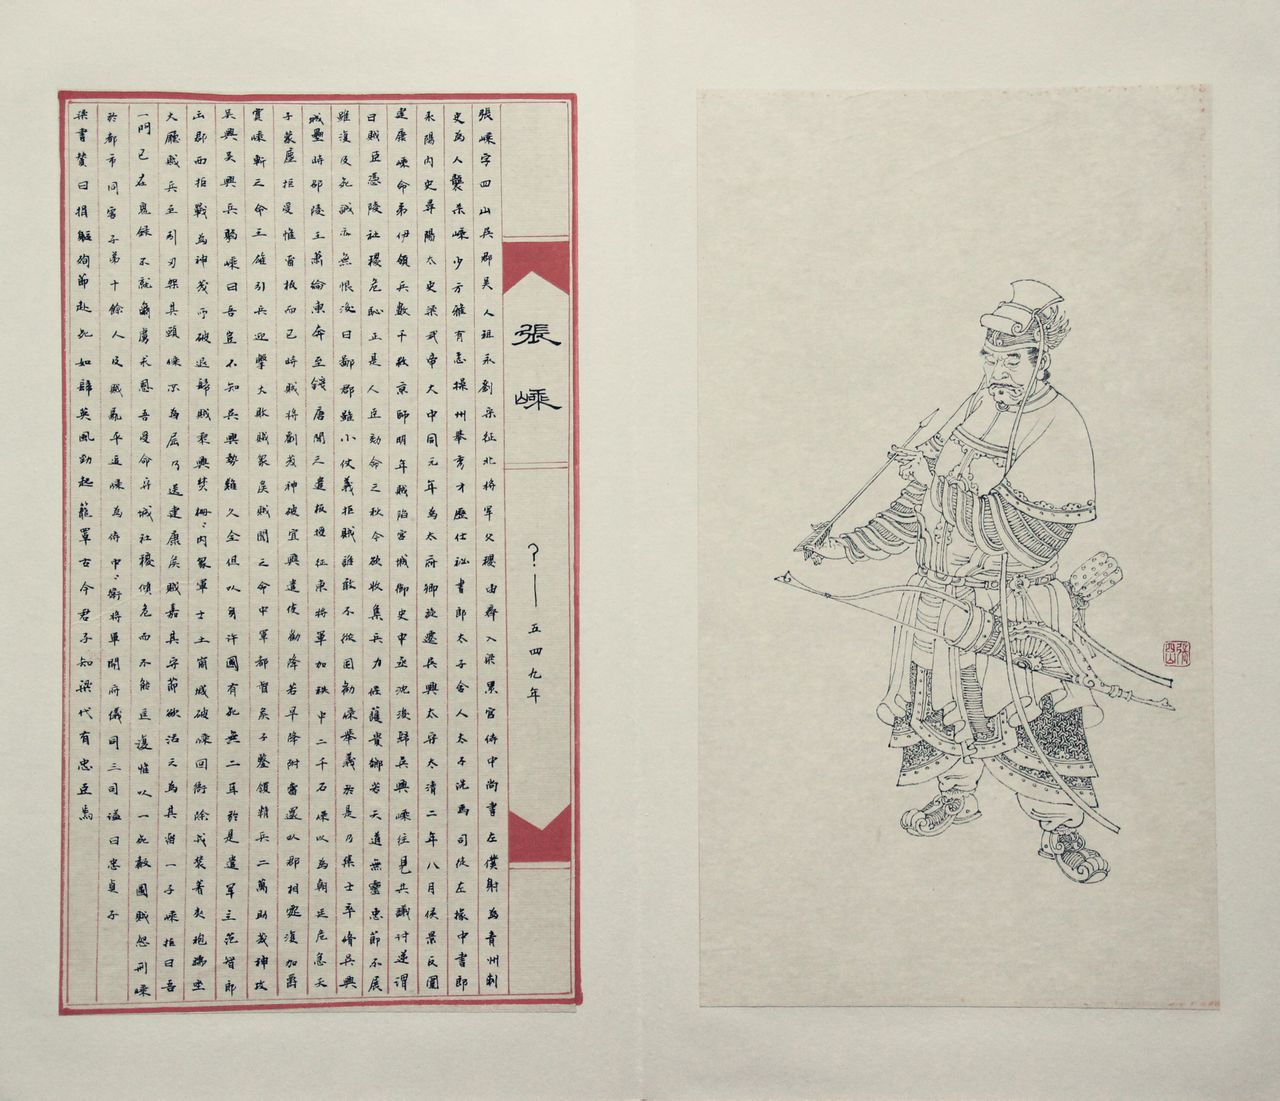 張嵊
?—五四九年
張嵊字四山吳郡吳人祖永劉宋征北將軍父瓌由齊入梁累官侍中尚書左僕射為青州刺
史為人襲嵊少方雅有志操州舉秀才歷仕祕書郎太子舍人太子洗馬司徒左掾中書郎
永陽內史尋陽太史梁武帝大中同元年為太府卿旋遷吳興太守太清二年八月侯景反圍
建康嵊命弟伊領兵數千救京師明年賊陷宮城御史中丞沈浚歸吳興嵊往見共議討逆謂
曰賊臣憑陵社稷危恥正是人臣効命之秋今欲收集兵力保護貴鄉若天道無靈忠節不展
雖復及死誠亦無恨浚曰鄙郡雖小仗義拒賊誰敢不從固勸嵊舉義於是乃集士卒脩吳興
城壘時邵陵王蕭綸東奔至錢唐聞之遣板授征東將軍加秩中二千石嵊以為朝廷危急天
子蒙塵拒受惟留板而已時賊將劉茂神破宜興遣使勸降若早降附當還以郡相處復加爵
賞嵊斬之命王雄引兵迎擊大敗賊眾侯賊聞之命中軍都督侯子鑒領精兵二萬助茂神攻
吳興吳興兵弱嵊曰吾豈不知吳興勢難久全但以身許國有死無二耳於是遣軍主范智郎
出郡西拒戰為神茂所破退歸賊乘興焚柵、內眾軍士土崩城破嵊回衙除戎裝著夫袍端坐
大廳賊兵至引刃架其頸嵊不為屈乃送建康侯賊嘉其守節欲活之為其留一子嵊拒曰吾
一門已在鬼錄不就爾虜求恩吾受命守城社稷傾危而不能匡復惟以一死報國賊怒刑嵊
於都市同害子弟十餘人及賊亂平追嵊為侍中、衛將軍開府儀同三司謚曰忠貞子
梁書贊曰捐軀殉節赴死如歸英風勁起籠罩古今君子知梁代有忠臣焉